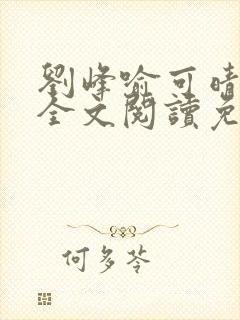 劉峰喻可晴
全文閱讀免
何多苓